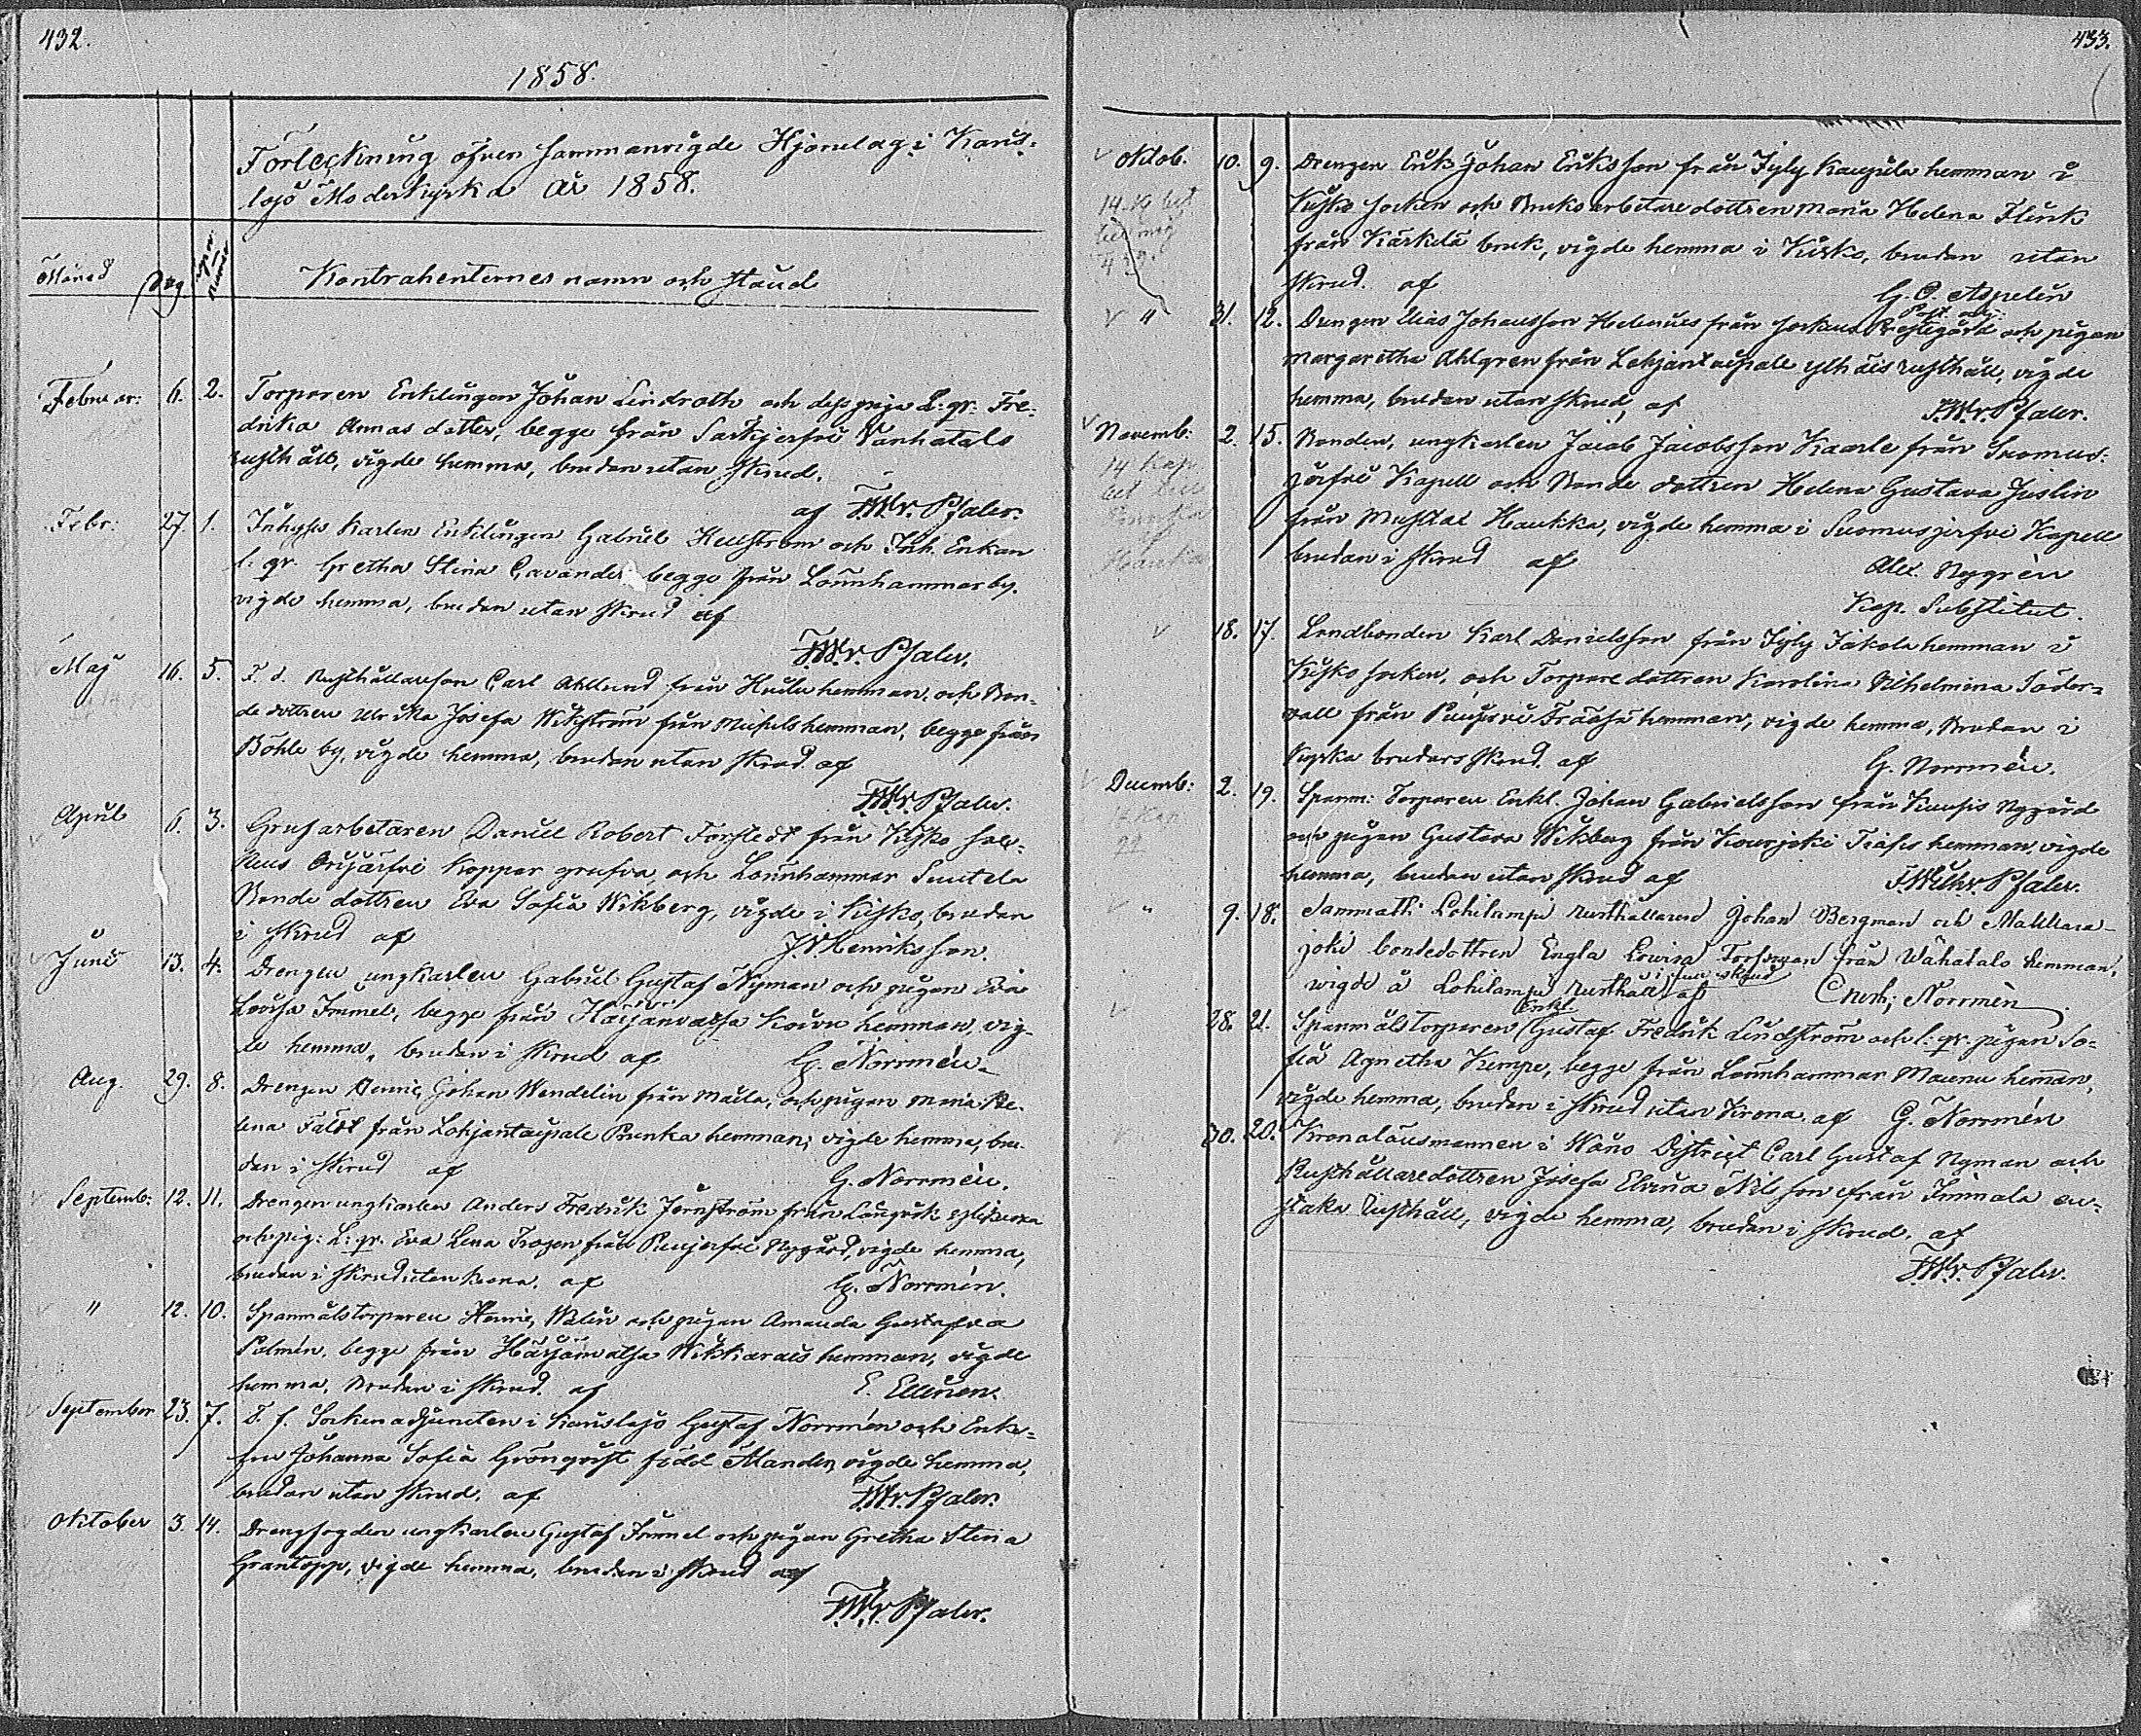 432.
1858.
Förteckning öfver sammanvigde Hjonelag i Karis-
lojo Moderkyrka År 1858.
Månad Dag Kontrahenternes namn och stånd
Februar: 6. 2. Torparen Enklingen Johan Lindroth och dess piga L: qv. Fre-
drika Annas dotter, begge från Särkjerfvi Vanhatalo
rusthåll, vigde hemma, bruden utan skrud.
af F.W.v. Pfaler.
Febr: 27. 1. Inhyses Karlen Enklingen Gabriel Hellström och Inh. Enkan
l: qv. Gretha Stina Cavander begge från Lönnhammar by.
vigde hemma, bruden utan skrud af
F.W.v. Pfaler.
Maj 16. 5. F. d. Rusthållareson Carl Ahllund från hemman, och Bon-
de dottren Ulrika Josefa Wikström från Michels hemman, begge från
Böhle by, vigde hemma, bruden utan skrud af
F.W.v. Pfaler.
April 6. 3. Grufarbetaren Daniel Robert Forstedt från Kisko sock-
nens Orijärfvi koppar grufva, och Lönnhammar Suutela
Bonde dottren Eva Sofia Wikberg, vigde i Kisko, bruden
i skrud af J.V. Henriksson.
Juni 13. 4. Drengen ungkarlen Gabriel Gustaf Nyman och pigan Eva
Lovisa Immel, begge från Härjänvatsa Koivu hemman, vig-
de hemma, bruden i skrud af G. Norrmén.
Aug. 29. 8. Drengen Henric Johan Wendelin från Maila, och pigan Maria He-
lena Fält från Lohjantaipale Prunka hemman; vigde hemma, bru-
den i skrud af G. Norrmén.
Septemb: 12. 11. Drengen ungkarlen Anders Fredrik Jernström från Långvik
och pig: L: qv. Eva Lena Trogen från Puujerfvi Nygård, vigde hemma,
bruden i skrud utan krona. af G. Norrmén.
" 12. 10. Spanmålstorparen Henric Walin och pigan Amanda Gustafva
Palmén, begge från Härjänvatsa Wikskarais hemman, vigde
hemma, Bruden i skrud. af E. Ellenen.
September 23. 7. T. f. Sockenadjuncten i Karislojo Gustaf Norrmén och Enke-
fru Johanna Sofia Grönqvist född Mander, vigde hemma,
bruden utan skrud. af F.W.v. Pfaler.
Oktober 3. 14. Drengfogden ungkarlen Gustaf Immel och pigan Gretha Stina
Grantopp, vigde hemma, bruden i skrud af
F.W.v. Pfaler.
433.
Oktob. 10. 9. Drengen Erik Johan Eriksson från Iyly hemman i
Kisko socken och Bruksarbetare dottren Maria Helena Flink
från Kärkelä bruk, vigde hemma i Kisko, bruden utan
skrud. af G. O. Aspelin
" 31. 12. Drengen Elias Johansson Helenius från sockens Prestegård och pigan
Margaretha Ahlgren från Lohjantaipale rusthåll, vigde
hemma, bruden utan skrud, af F.W.v. Pfaler.
Novemb: 2. 15. Bonden, ungkarlen Jacob Jacobsson Kaarle från Suomus-
järfvi Kapell och Bonde dottren Helena Gustava Juslin
från Mustlat Haukka, vigde hemma i Suomusjerfvi Kapell
bruden i skrud af Alex. Nygrén
Kap. Substitut.
18. 17. Landbonden Karl Danielsson från Iyly Jakola hemman i
Kisko socken, och Torpare dottren Karolina Wilhelmina Söder-
vall från Puujervi hemman, vigde hemma, Bruden i
kyrka brudarskrud. af G. Norrmén.
Decemb: 2. 19. Spanm: Torparen Enkl. Johan Gabrielsson från Nygård
och pigan Gustava Wikberg från hemman, vigde
hemma, bruden utan skrud af F. Wilh.v. Pfaler.
" 9. 18. Sammatti Lohilampi rusthållaren Johan Bergman och
joki bondedottren Engla Lovisa Forsman från Wähätalo hemman,
i full skrud
wigde å Lohilampi rusthåll af G. Norrmén
Enkl.
28. 21. Spanmåls Torparen Gustaf Fredrik Lindström och l: qv. pigan So-
fia Agnetha Kempe, begge från Lönnhammar Maenu hemman,
vigde hemma, bruden i skrud utan krona. af G. Norrmén
30. 20. Kronolänsmannen i Wåno District Carl Gustaf Nyman och
Rusthållaredottren Josefa Elvina Nilsson från Immola en-
staka rusthåll, vigde hemma, bruden i skrud. af
F.W.v. Pfaler.